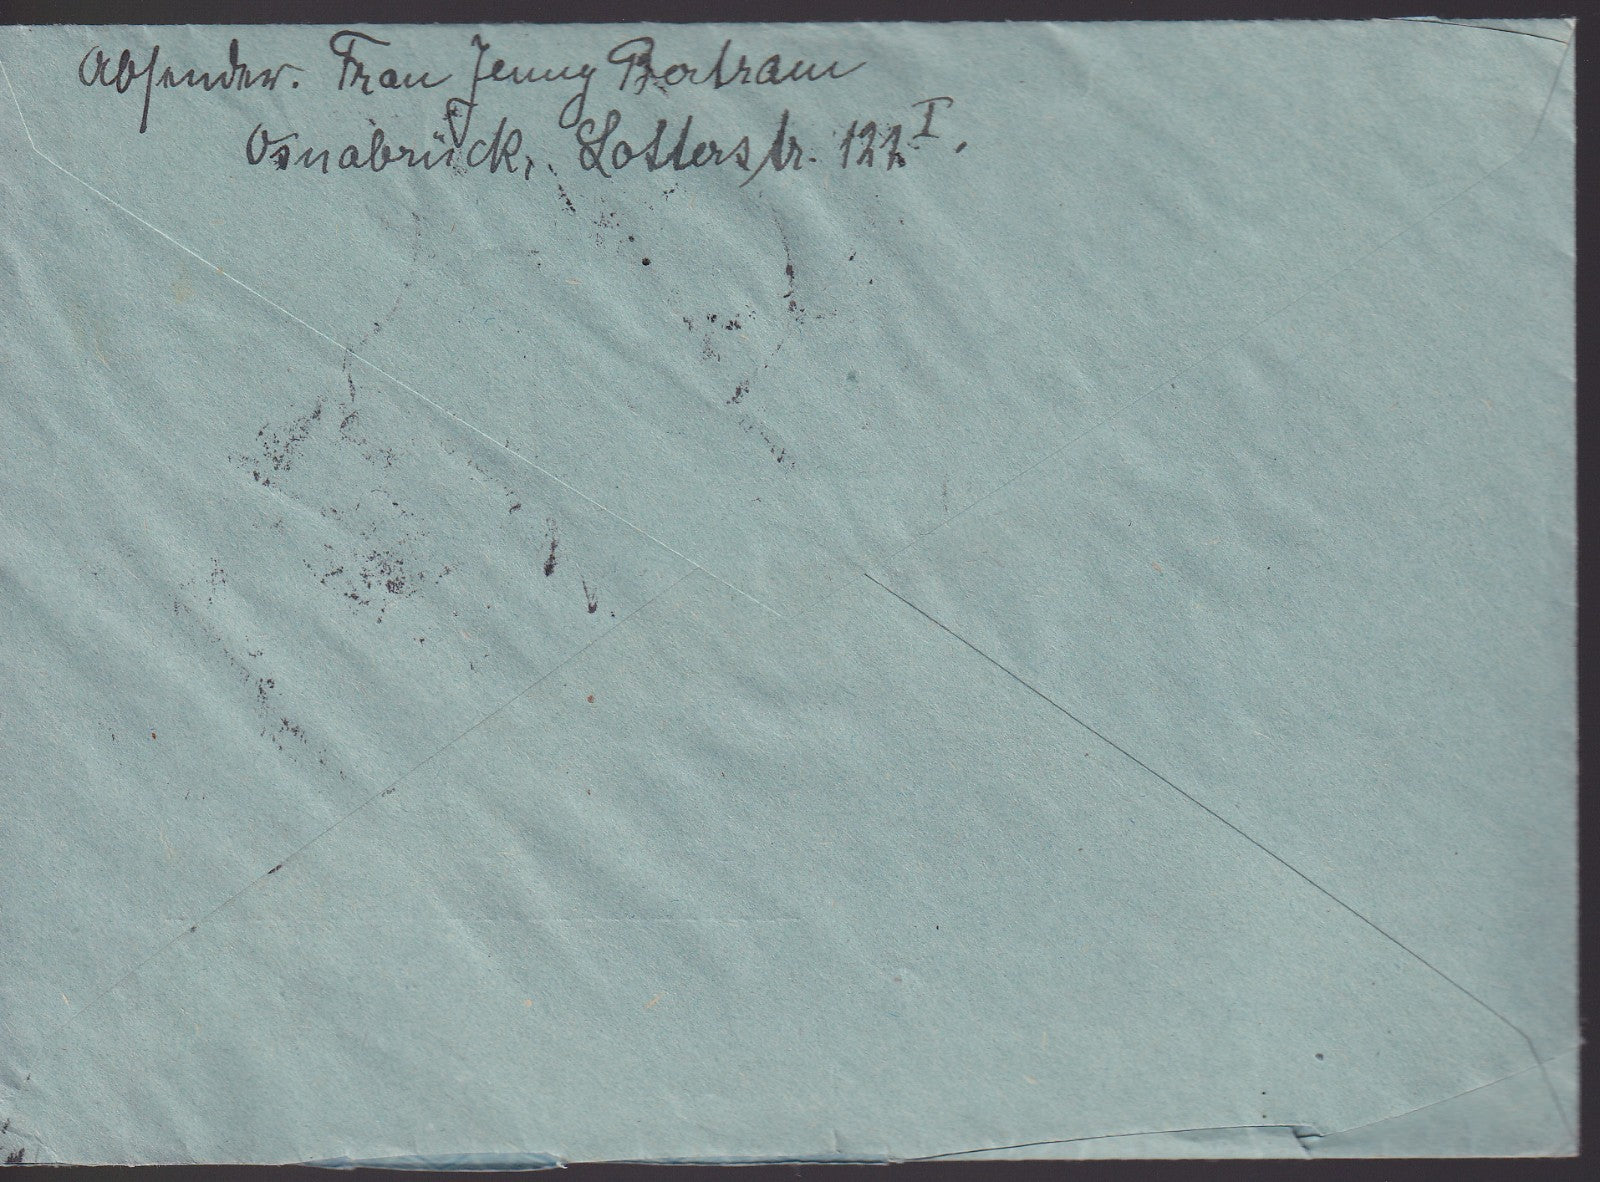 Absender. Frau Jenny Bertram
Osnabrück, Lotterstr. 122 I.